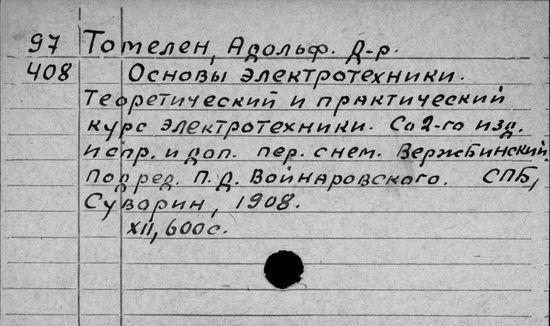 97 Томелен, Адольф. Д-р.
408 Основы электротехники.
Теоретический и практический
курс электротехники. Со 2-го изд.
испр. и доп. пер. с нем. Вержбинский.
Под ред. П. Д. Войнаровского. СПБ,
Суворин, 1908.
XII, 600с.